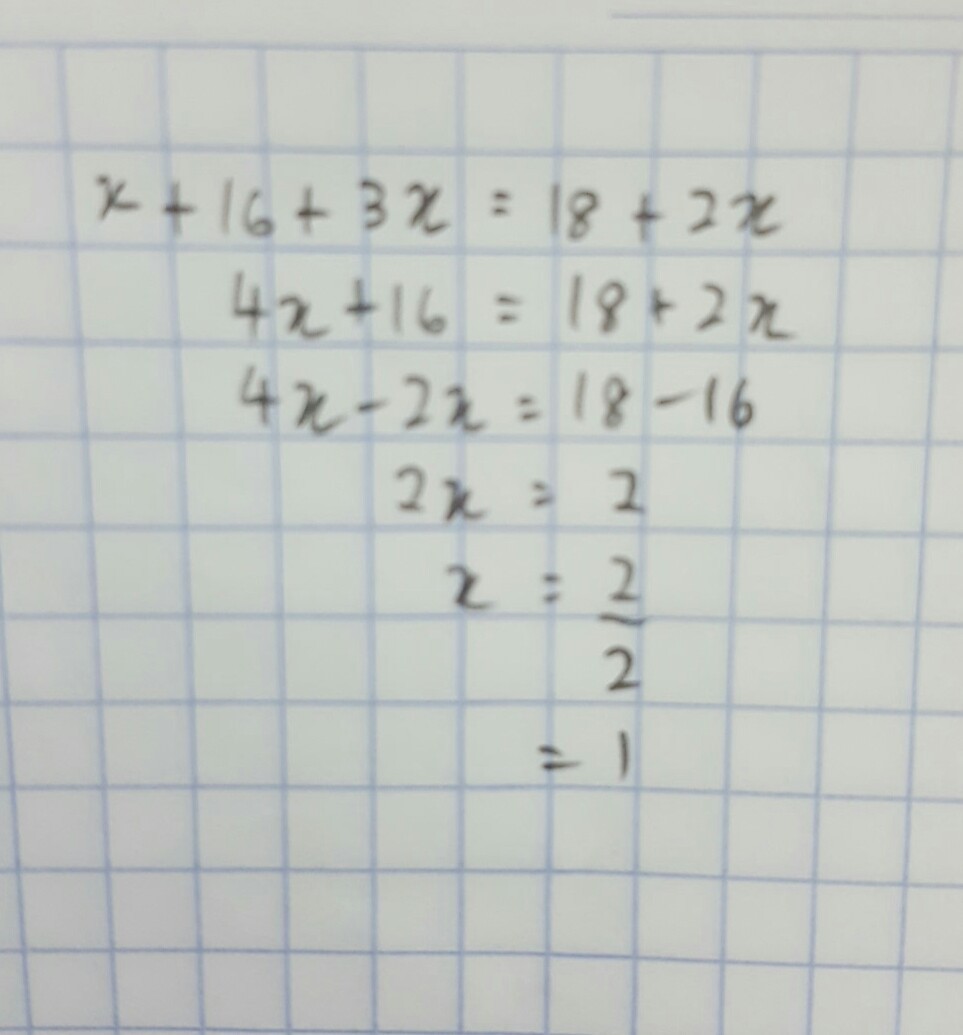 x + 16 + 3x = 18 + 2x
4x + 16 = 18 + 2x
4x - 2x = 18 - 16
2x = 2
x = 2/2
= 1